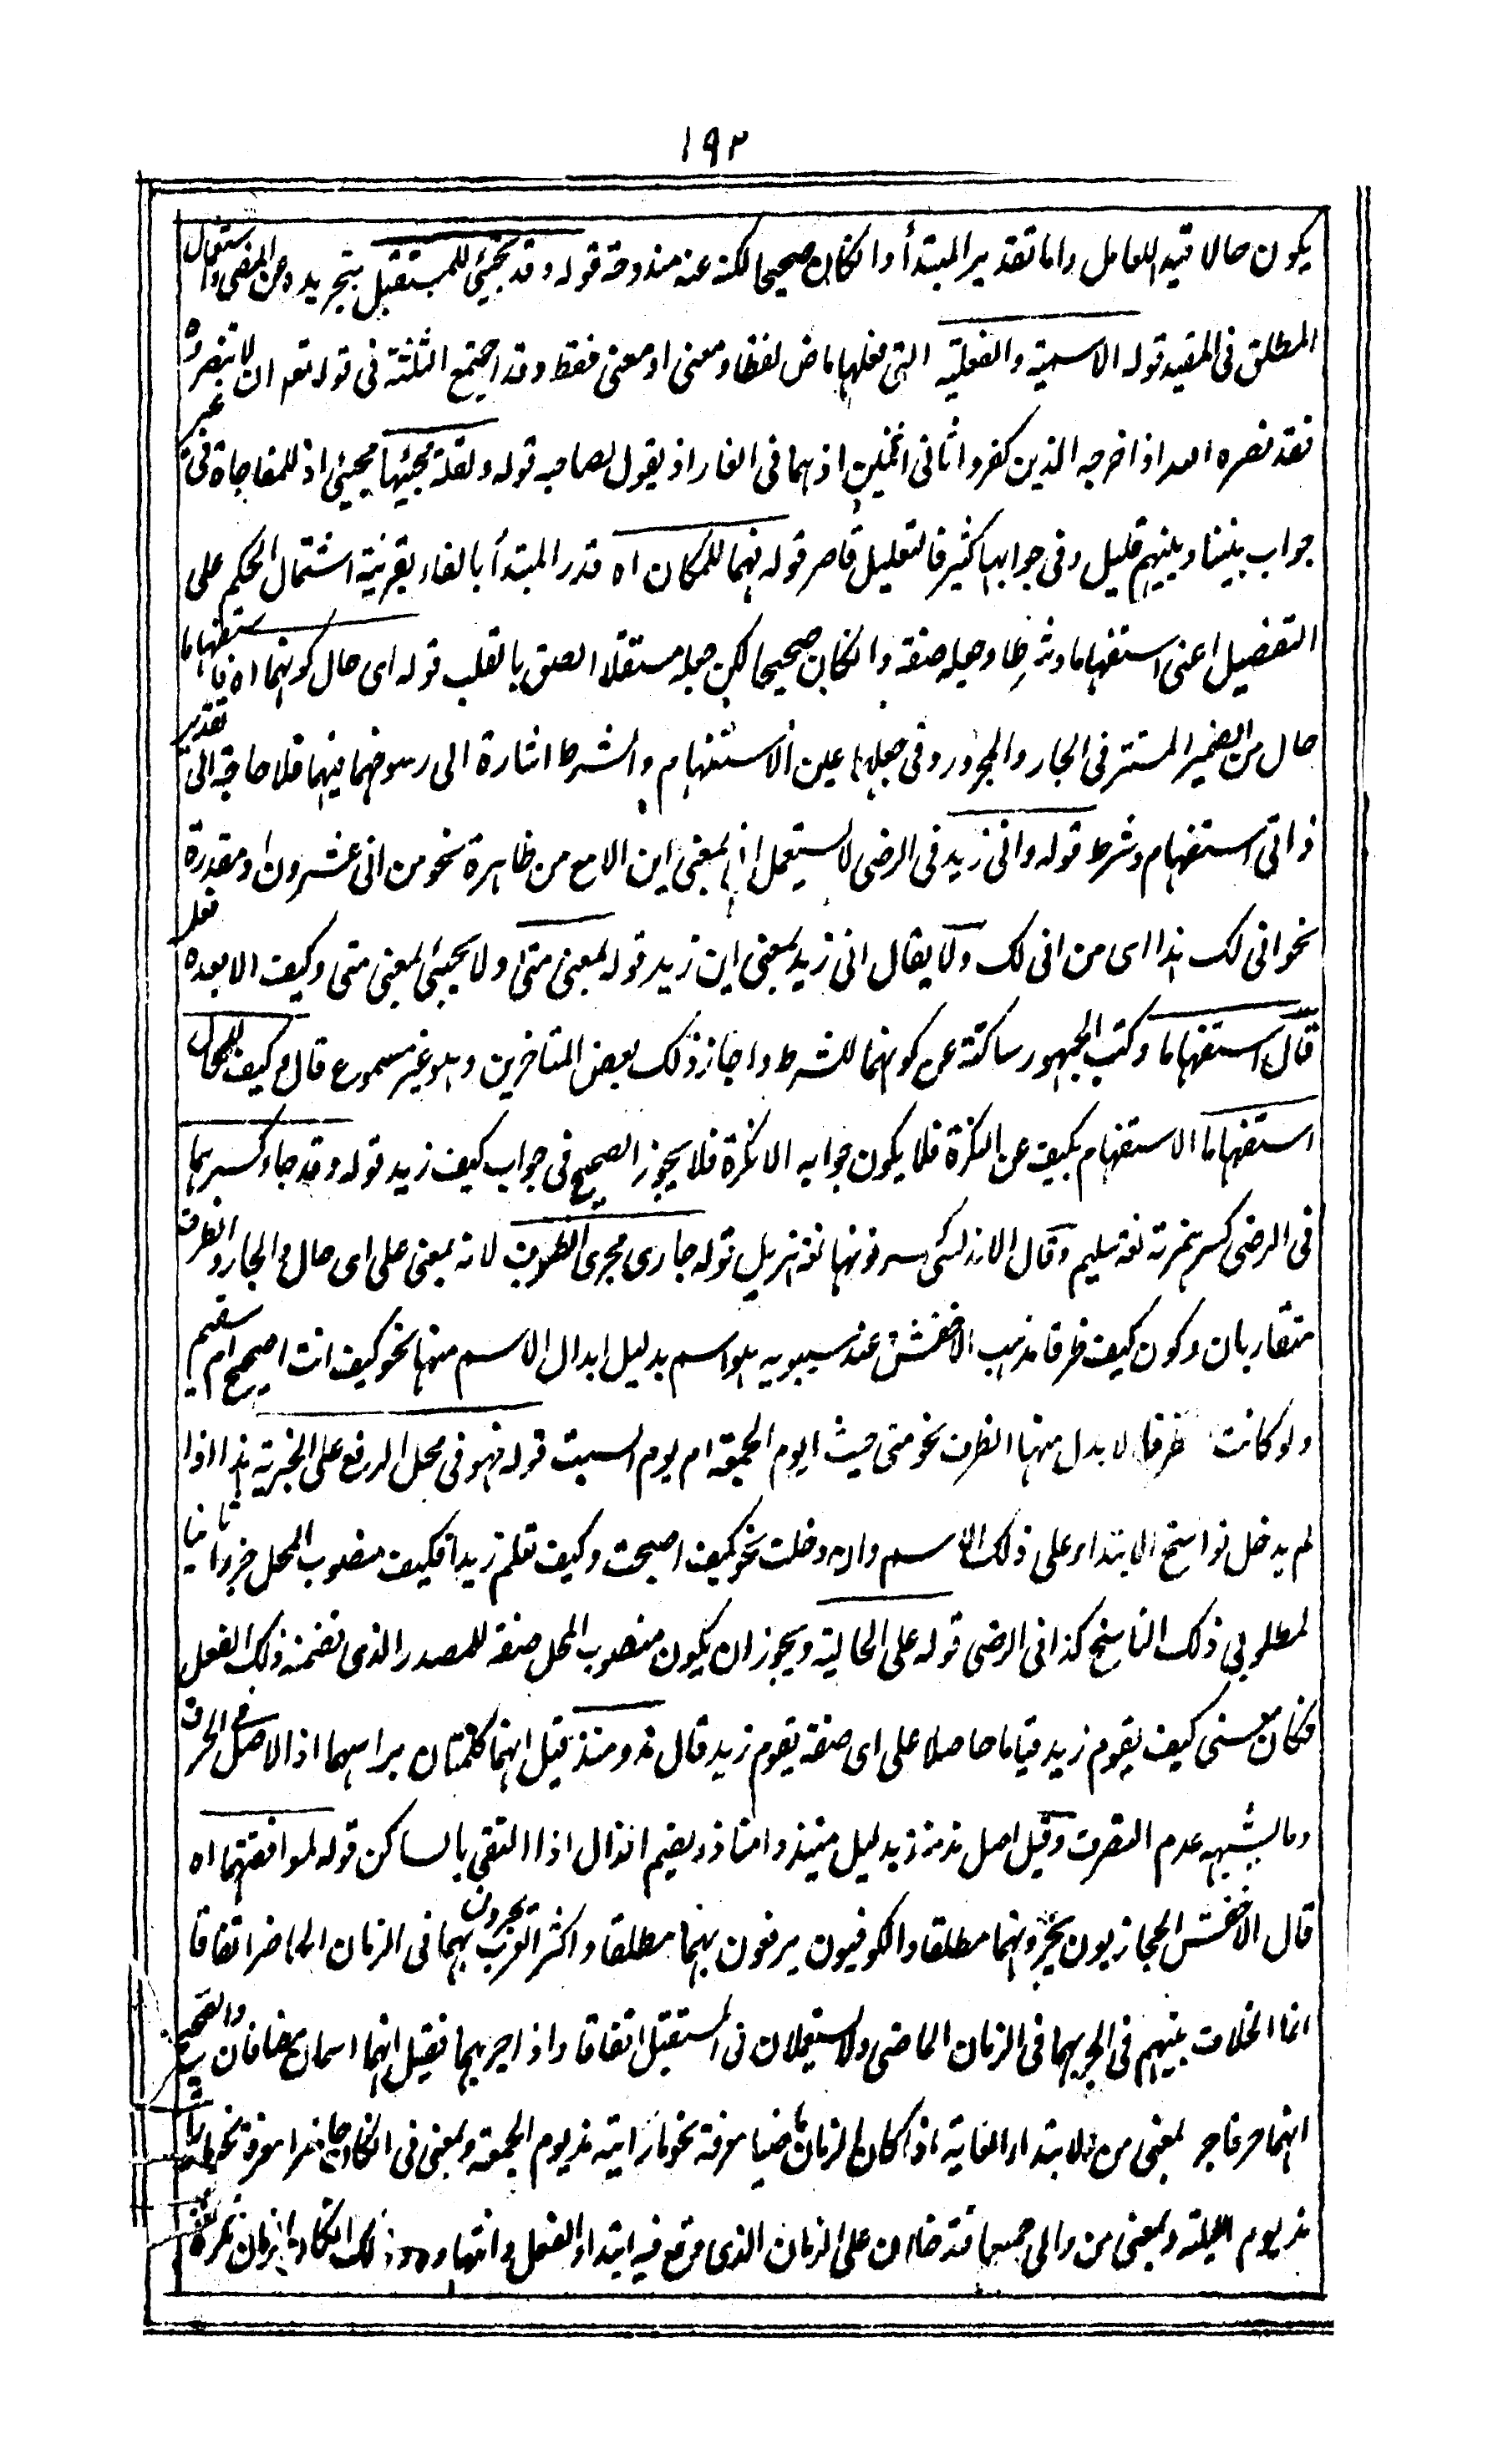 ١٩٢
يكون حالا قيد اللعامل واما تقدير المبتدأ وان كان صحيحا لكنه عنه مندوحة قوله وقد تجيئ للمستقبل بتجريده عن المضى واستعمال
المطلق فى المقيد قوله الاسمية والفعلية التى فعلها ماض لفظا ومعنى او معنى فقط وقد اجتمع الثلثة فى قوله تعه ان لا تنصروه
فقد نصره الله اذ اخرجه الذين كفروا ثانى اثنين اذ هما فى الغار اذ يقول لصاحبه قوله ولقلة مجيئها مجيئ اذ للمفاجاة فى غير
جواب بينا وبينهم قليل وفى جوابها كثير فالتعليل قاصر قوله فهما للمكان اه قدر المبتدأ بالفاء بقرينة اشتمال الحكم على
التفصيل اعنى استفهاما وشرطا وجعله صفة وان كان صحيحا لكن جعله مستقلا الصق بالقلب قوله اى حال كونهما اه فاستفهاما
حال من الضمير المستتر فى الجار والمجرور وفى جعلهما عين الاستفهام والشرط اشارة الى رسوخهما فيهما فلا حاجة الى تقدير
ذاتى استفهام وشرط قوله وانى زيد فى الرضى لا يستعمل انى بمعنى اين الا مع من ظاهرة نحو من انى عشرون او مقدرة
نحو انى لك هذا اى من انى لك ولا يقال انى زيد بمعنى اين زيد قوله بمعنى متى ولا يجيئ بمعنى متى وكيف الا بعده فعل
قال استفهاما وكتب الجمهور ساكتة عن كونهما للشرط واجاز ذلك بعض المتاخرين وهو غير مسموع قال وكيف للحال
استفهاما الاستفهام بكيف عن النكرة فلا يكون جوابه الا نكرة فلا يجوز الصحيح فى جواب كيف زيد قوله وقد جاء كسرهما
فى الرضى كسر همزته لغة سليم وقال الاندلسى كسر نونها لغة قوله جارى مجرى الظروف لانه بمعنى على اى حال والجار والظرف
متقاربان وكون كيف ظرفا مذهب الاخفش عند سيبويه هو اسم بدليل ابدال الاسم منها نحو كيف انت اصحيح ام سقيم
ولو كانت ظرفا لابدل منها الظرف نحو متى جئت ايوم الجمعة ام يوم السبت قوله فهو فى محل الرفع على الخبرية هذا اذا
لم يدخل نواسخ الابتداء على ذلك الاسم وان دخلت نحو كيف اصبحت وكيف تعلم زيدا فكيف منصوب المحل خبرا وثانيا
لمطلوبى ذلك الناسخ كذا فى الرضى قوله على الحالية ويجوز ان يكون منصوب المحل صفة للمصدر الذى تضمنه ذلك الفعل
فكان معنى كيف يقوم زيد قياما حاصلا على اى صفة يقوم زيد قال مذ ومنذ قيل انهما كلمتان براسهما اذ الاصل فى الحرف
وما يشبهه عدم التصرف وقيل اصل مذ منذ بدليل منيذ وامناذ وبضم الذال اذا التقى بالساكن قوله لموافقتهما اه
قال الاخفش الحجازيون يجرون بهما مطلقا والكوفيون يرفعون بهما مطلقا واكثر العرب يجرون بهما فى الزمان الحاضر اتفاقا
انما الخلاف بينهم فى الجر بهما فى الزمان الماضى ولا يستعملان فى المستقبل اتفاقا واذا جر بهما فقيل انهما اسمان مضافان والصحيح
انهما حرفا جر بمعنى من لابتداء الغاية اذا كان الزمان ماضيا معرفة نحو ما رايته مذ يوم الجمعة وبمعنى فى ان كان حاضرا معرفة نحو ما
مذ يوم الليلة وبمعنى من والى جميعا فتدخلان على الزمان الذى وقع فيه ابتداء الفعل وانتهاؤه وذلك ان كان الزمان نكرة